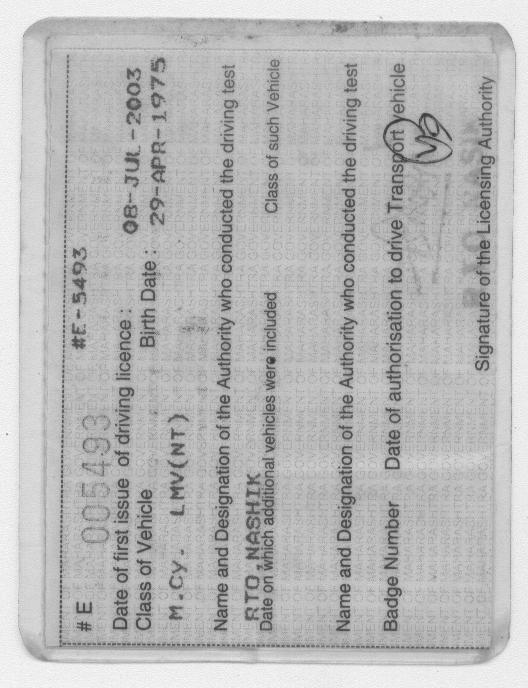 #E-5493
# E 005493
Date of first issue of driving licence : 08-JUL-2003
Class of Vehicle Birth Date : 29-APR-1975
M.Cy. LMV(NT)
Name and Designation of the Authority who conducted the driving test
RTO,NASHIK
Date on which additional vehicles were included Class of such Vehicle
Name and Designation of the Authority who conducted the driving test
Badge Number Date of authorisation to drive Transport vehicle
RTO NASIK
Signature of the Licensing Authority